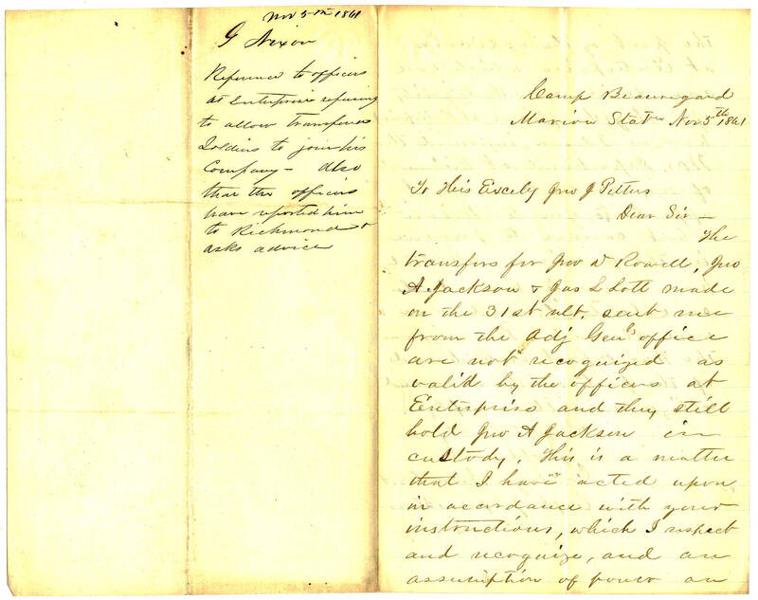 Nov 5th 1861
G Nixon
Reference to officers
at Enterprise refusing
to allow transfered
Soldiers to join his
Company - Also
that the officers
have reported him
to Richmond &
asks advice
Camp Beauregard
Marion Station Nov 5th 1861
To His Excely Jno J Pettus
Dear Sir -
The
transfers for Jno W Rowell, Jno
A Jackson & Jas L Lott made
on the 31st ult. sent me
from the Adj Genls office
are not recognized as
valid by the officers at
Enterprise and they still
hold Jno A Jackson in
custody. This is a matter
that I have acted upon
in accordance with your
instructions, which I respect
and recognize, and an
assumption of power on